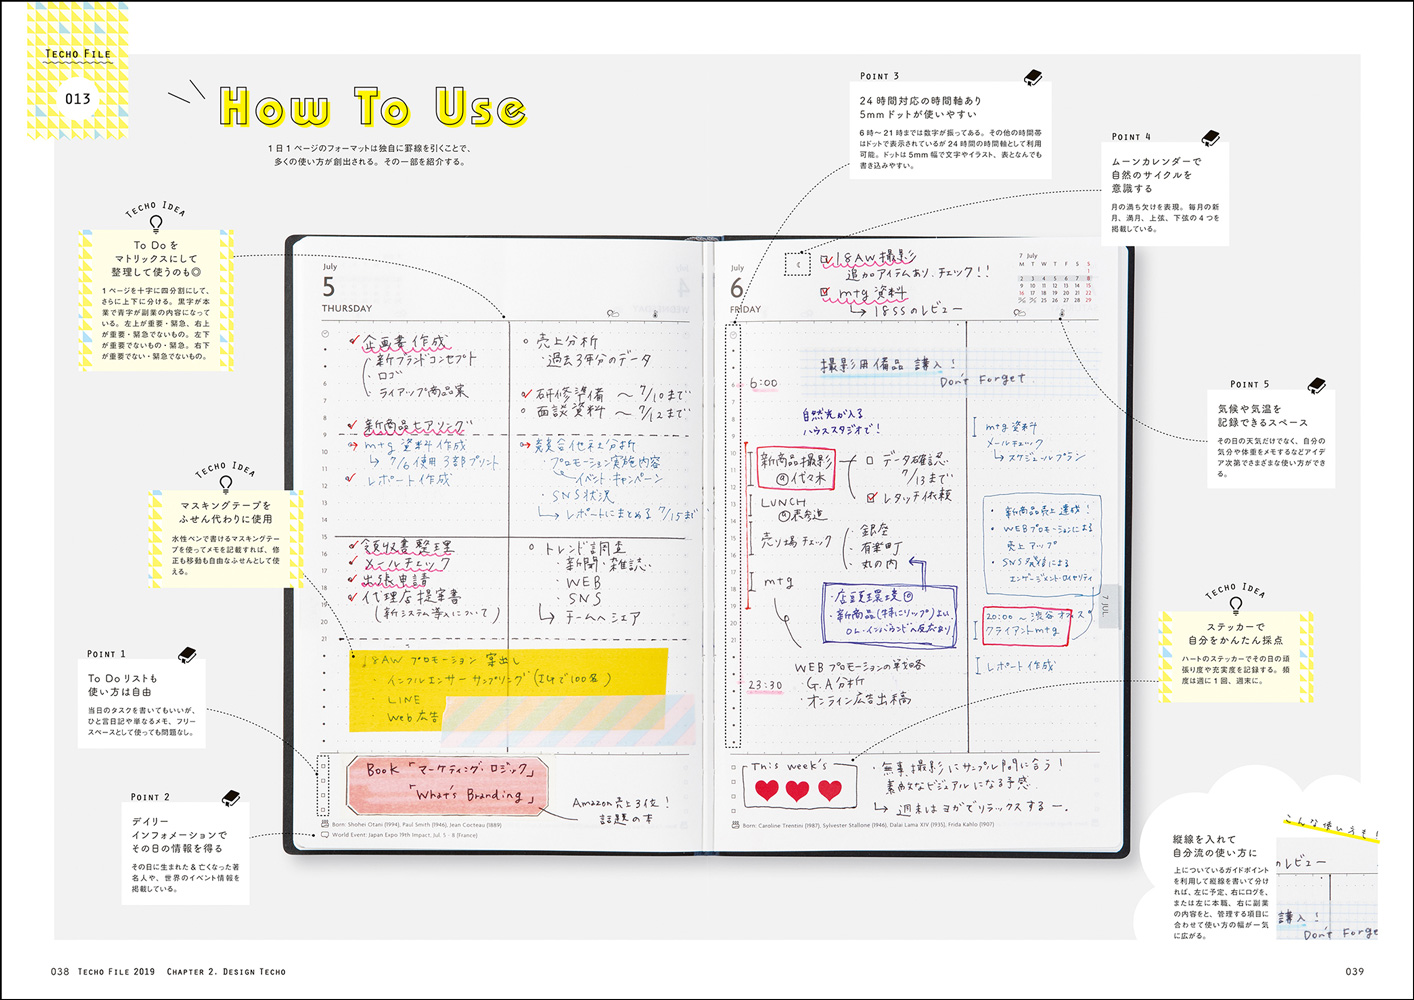 TECHO FILE
013
How To Use
1日1ページのフォーマットは独自に罫線を引くことで、
多くの使い方が創出される。その一部を紹介する。
TECHO IDEA
To Doを
マトリックスにして
整理して使うのも◎
1ページを十字に四分割にして、
さらに上下に分ける。黒字が本
業で青字が副業の内容になって
いる。左上が重要・緊急、右上
が重要・緊急でないもの。左下
が重要でないもの・緊急。右下
が重要でない・緊急でないもの。
TECHO IDEA
マスキングテープを
ふせん代わりに使用
水性ペンで書けるマスキングテー
プを使ってメモを記載すれば、修
正も移動も自由なふせんとして使
える。
POINT 1
To Doリストも
使い方は自由
当日のタスクを書いてもいいが、
ひと言日記や単なるメモ、フリー
スペースとして使っても問題なし。
POINT 2
デイリー
インフォメーションで
その日の情報を得る
その日に生まれた&亡くなった著
名人や、世界のイベント情報を
掲載している。
July
5
THURSDAY
企画書作成
新ブランドコンセプト
・ロゴ
・ライアップ商品案
新商品ヒアリング
mtg資料作成
↳ 7/6使用 3部プリント
レポート作成
領収書整理
メールチェック
出張申請
代理店提案書
(新システム導入について)
売上分析
・過去3年分のデータ
研修準備 〜 7/10まで
面談資料 〜 7/12まで
→ 競合他社分析
・プロモーション実施内容
・イベント・キャンペーン
・SNS状況
↳ レポートにまとめる 7/15まで
トレンド調査
・新聞・雑誌
・WEB
・SNS
↳ チームへシェア
18AW プロモーション 案出し
・インフルエンサー サンプリング(IGで100名)
・LINE
・Web広告
Book 「マーケティング・ロジック」
「What's Branding」
Amazon売上3位!
話題の本
Born: Shohei Otani (1994), Paul Smith (1946), Jean Cocteau (1889)
World Event: Japan Expo 19th Impact, Jul. 5 - 8 (France)
July
6
FRIDAY
18AW撮影
追加アイテムあり、チェック!!
mtg資料
↳ 18SSのレビュー
7 July
M T W T F S S
1
2 3 4 5 6 7 8
9 10 11 12 13 14 15
16 17 18 19 20 21 22
23/30 24/31 25 26 27 28 29
撮影用備品 購入!
Don't Forget
6:00
自然光が入る
ハウススタジオで!
新商品撮影
@代々木
データ確認
7/13まで
レタッチ依頼
LUNCH
@表参道
売り場チェック
・銀座
・有楽町
・丸の内
mtg
・店頭環境
・新商品(特にリップ)よい
OL・インバウンドへ反応あり
WEBプロモーションの戦略
・G.A分析
・オンライン広告出稿
23:30
mtg資料
メールチェック
↳ スケジュールプラン
・新商品売上達成!
・WEBプロモーションによる
売上アップ
・SNS発信による
エンゲージメント・ロイヤリティ
20:00〜渋谷オフィス
クライアントmtg
レポート作成
7 JUL
This week's
・無事、撮影にサンプル間に合う!
素敵なビジュアルになる予感
↳ 週末はヨガでリラックスするー。
Born: Caroline Trentini (1987), Sylvester Stallone (1946), Dalai Lama XIV (1935), Frida Kahlo (1907)
POINT 3
24時間対応の時間軸あり
5mmドットが使いやすい
6時〜21時までは数字が振ってある。その他の時間帯
はドットで表示されているが24時間の時間軸として利用
可能。ドットは5mm幅で文字やイラスト、表となんでも
書き込みやすい。
POINT 4
ムーンカレンダーで
自然のサイクルを
意識する
月の満ち欠けを表現。毎月の新
月、満月、上弦、下弦の4つを
掲載している。
POINT 5
気候や気温を
記録できるスペース
その日の天気だけでなく、自分の
気分や体重をメモするなどアイデ
ア次第でさまざまな使い方ができ
る。
TECHO IDEA
ステッカーで
自分をかんたん採点
ハートのステッカーでその日の頑
張り度や充実度を記録する。頻
度は週に1回、週末に。
縦線を入れて
自分流の使い方に
上についているガイドポイント
を利用して縦線を書いて分け
れば、左に予定、右にログを、
または左に本職、右に副業
の内容をと、管理する項目に
合わせて使い方の幅が一気
に広がる。
こんな使い方も!
のレビュー
購入!
Don't Forge
038 TECHO FILE 2019 CHAPTER 2. DESIGN TECHO
039